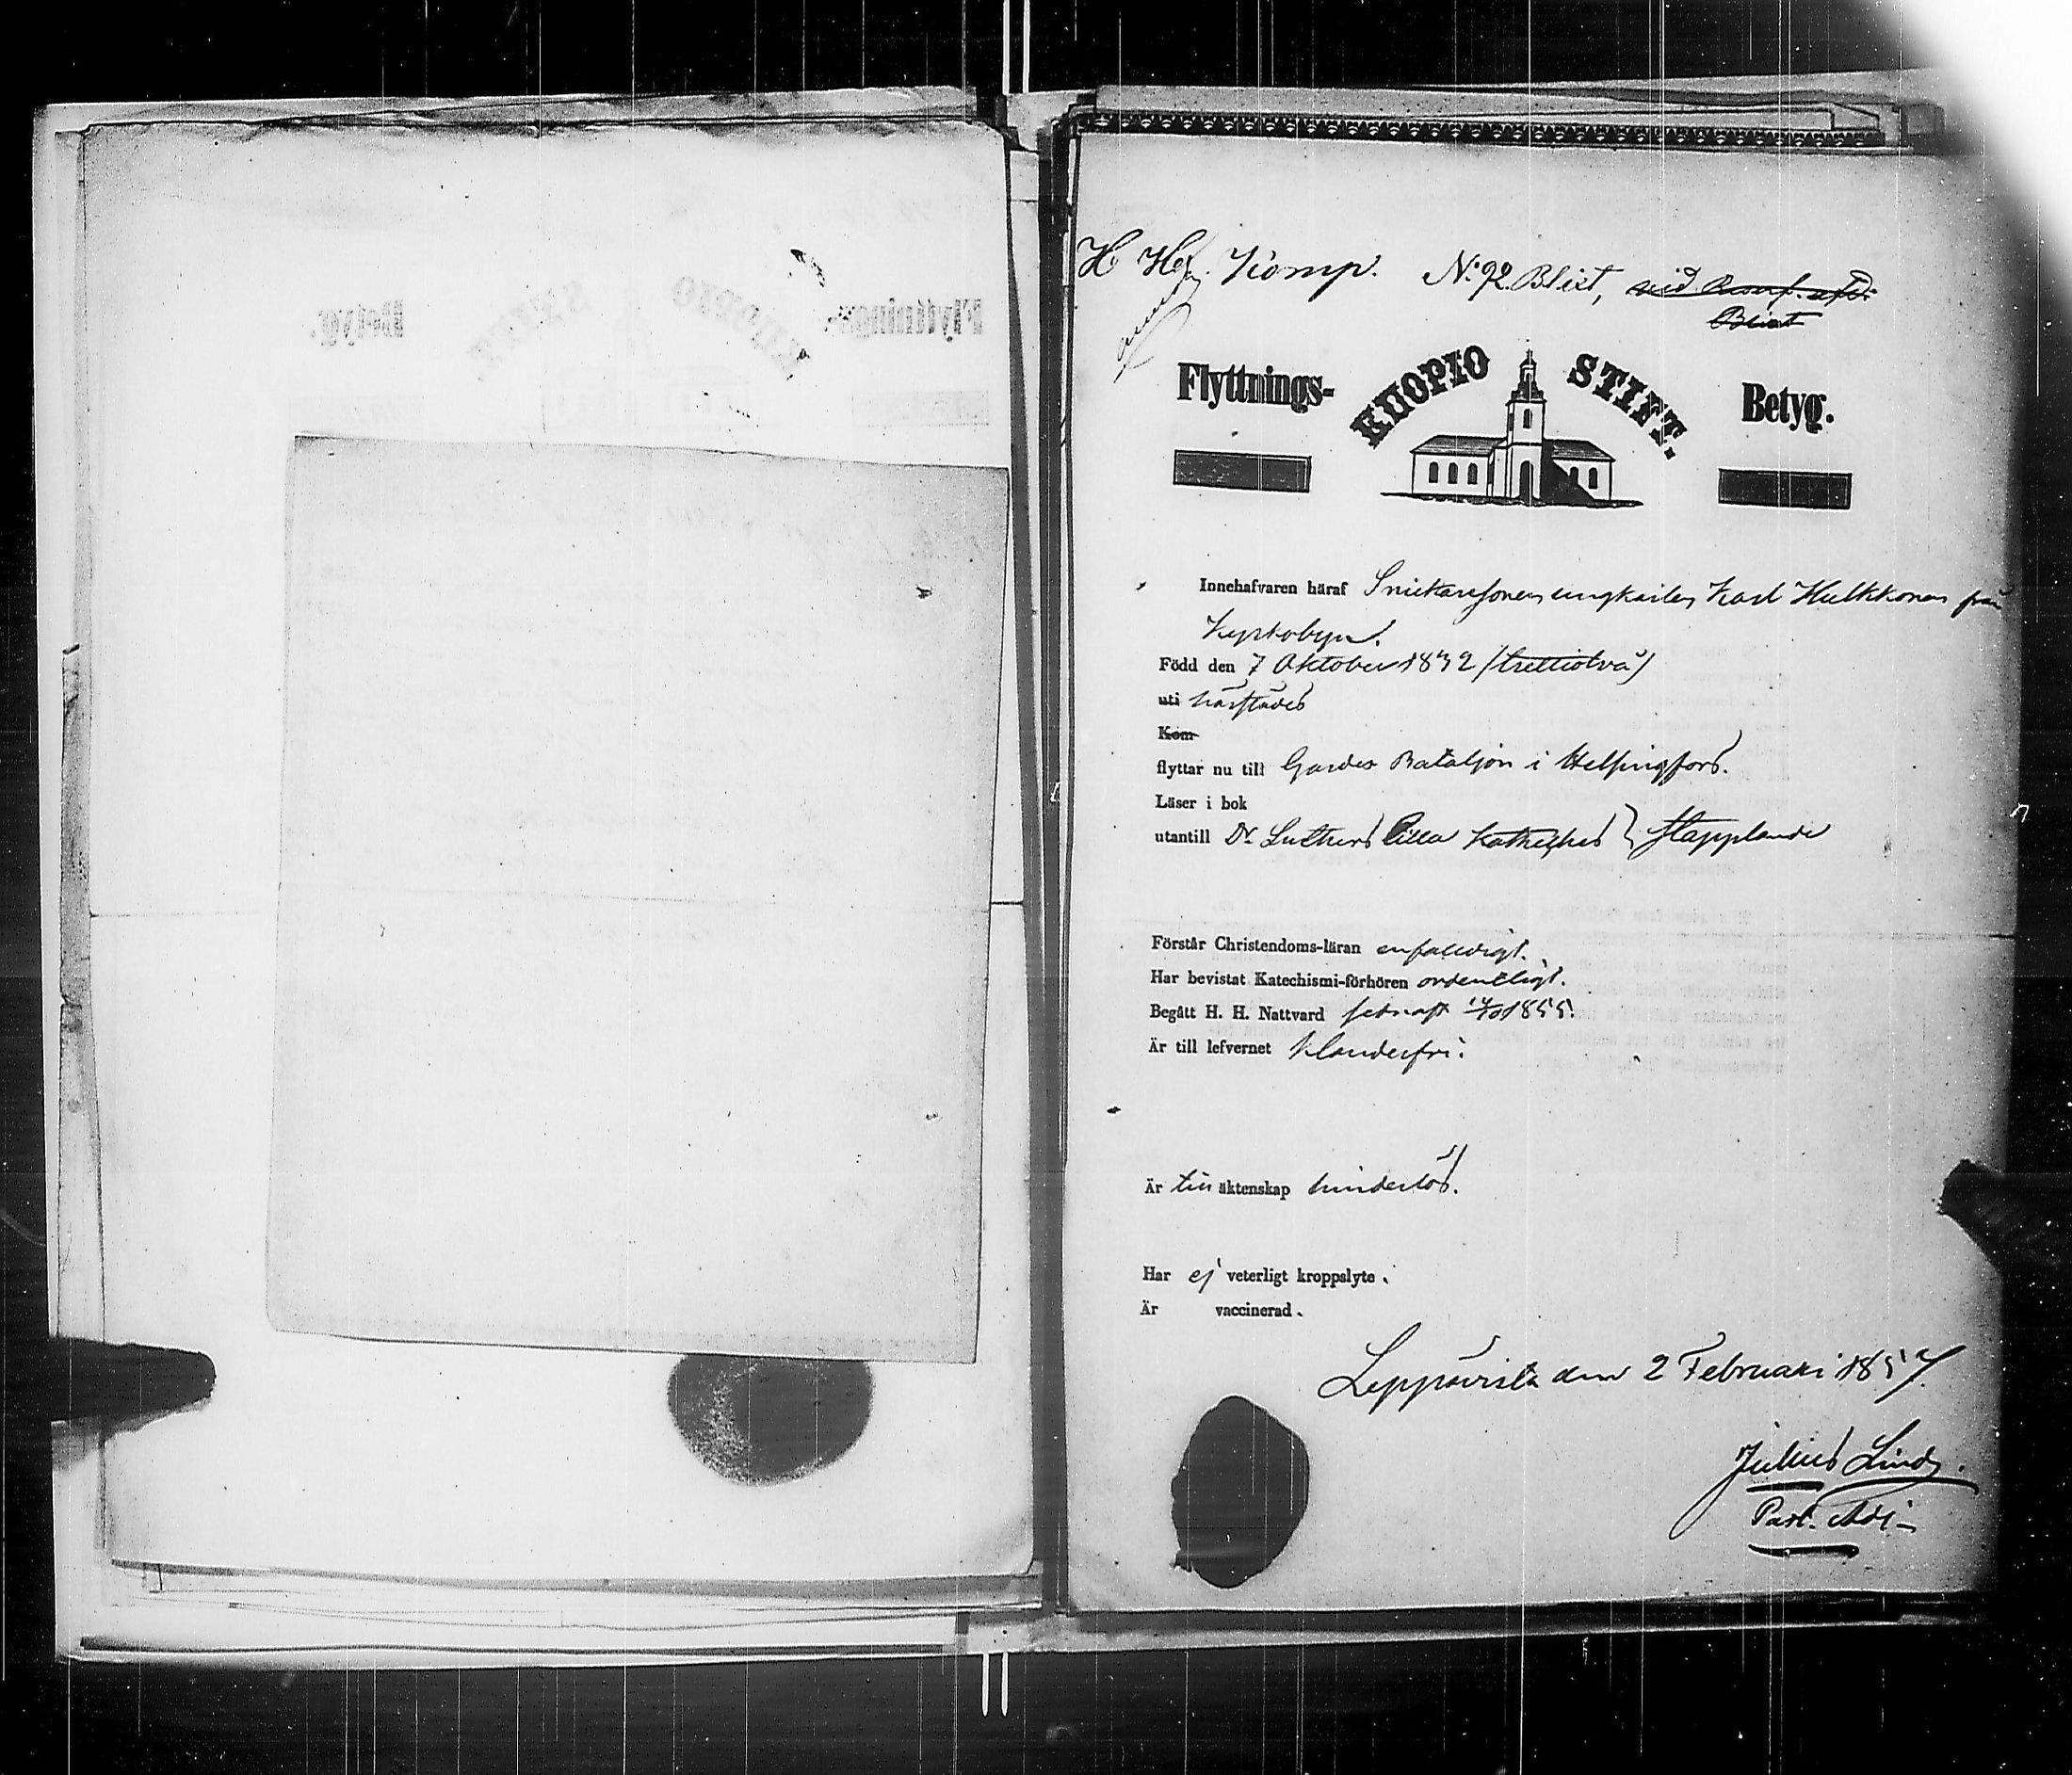 H H Komp. No 92 Blixt, ~~vid~~
~~Blixt~~
Flyttnings- KUOPIO STIFT. Betyg.
Innehafvaren häraf Snickaresonen ungkarlen Karl Hulkkonen från
Kyrkobyn.
Född den 7 Oktober 1832 (trettiotvå)
uti härstädes
~~Kom~~
flyttar nu till Gardes Bataljon i Helsingfors.
Läser i bok
utantill Dr Luthers Lilla Kateches } stapplande
Förstår Christendoms-läran enfaldigt.
Har bevistat Katechismi-förhören ordentligt.
Begått H. H. Nattvard sednast 14/10 1855.
Är till lefvernet klanderfri.
Är till äktenskap hinderlös.
Har ej veterligt kroppslyte.
Är vaccinerad.
Leppävirta den 2 Februari 1857.
Julius Lindh.
Past. Adj.